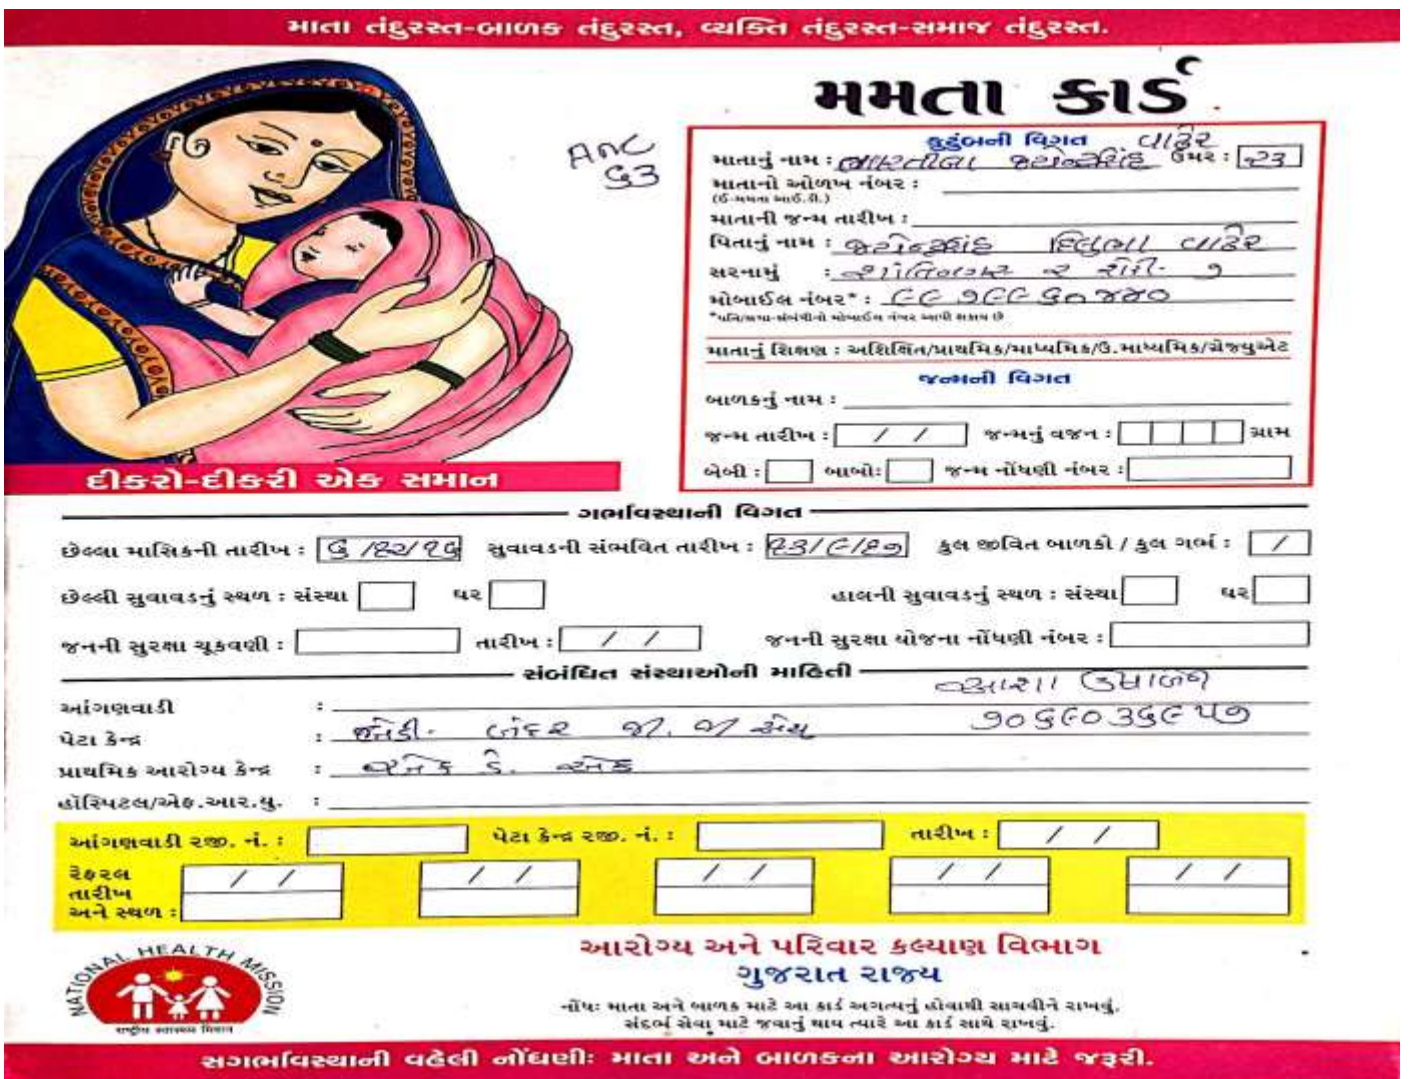 માતા તંદુરસ્ત-બાળક તંદુરસ્ત, વ્યક્તિ તંદુરસ્ત-સમાજ તંદુરસ્ત.
મમતા કાર્ડ
ANC
૬૩
કુટુંબની વિગત વાઢેર
માતાનું નામ : ભારતીબા ઉંમર : ૨૩
માતાનો ઓળખ નંબર :
(ઈ-મમતા આઈ.ડી.)
માતાની જન્મ તારીખ :
પિતાનું નામ : વાઢેર
સરનામું : શાંતિનગર ૨ શેરી- ૭
મોબાઈલ નંબર* : ૯૯૭૯૯૬૦૪૪૦
*પતિ/સગા-સંબંધીનો મોબાઈલ નંબર આપી શકાય છે
માતાનું શિક્ષણ : અશિક્ષિત/પ્રાથમિક/માધ્યમિક/ઉ.માધ્યમિક/ગ્રેજ્યુએટ
જન્મની વિગત
બાળકનું નામ :
જન્મ તારીખ : / / જન્મનું વજન : ગ્રામ
બેબી : બાબો: જન્મ નોંધણી નંબર :
દીકરો-દીકરી એક સમાન
ગર્ભાવસ્થાની વિગત
છેલ્લા માસિકની તારીખ : ૬/૧૨/૧૬ સુવાવડની સંભવિત તારીખ : ૧૩/૯/૧૭ કુલ જીવિત બાળકો / કુલ ગર્ભ : /
છેલ્લી સુવાવડનું સ્થળ : સંસ્થા ઘર હાલની સુવાવડનું સ્થળ : સંસ્થા ઘર
જનની સુરક્ષા ચૂકવણી : તારીખ : / / જનની સુરક્ષા યોજના નોંધણી નંબર :
સંબંધિત સંસ્થાઓની માહિતી
આશા
આંગણવાડી :
૭૦૬૯૦૩૬૯૫૭
પેટા કેન્દ્ર : બંદર જી. જી એચ
પ્રાથમિક આરોગ્ય કેન્દ્ર :
હોસ્પિટલ/એફ.આર.યુ. :
આંગણવાડી રજી. નં. : પેટા કેન્દ્ર રજી. નં. : તારીખ : / /
રેફરલ / / / / / / / / / /
તારીખ
અને સ્થળ :
NATIONAL HEALTH MISSION
राष्ट्रीय स्वास्थ्य मिशन
આરોગ્ય અને પરિવાર કલ્યાણ વિભાગ
ગુજરાત રાજ્ય
નોંધઃ માતા અને બાળક માટે આ કાર્ડ અગત્યનું હોવાથી સાચવીને રાખવું.
સંદર્ભ સેવા માટે જવાનું થાય ત્યારે આ કાર્ડ સાથે રાખવું.
સગર્ભાવસ્થાની વહેલી નોંધણીઃ માતા અને બાળકના આરોગ્ય માટે જરૂરી.